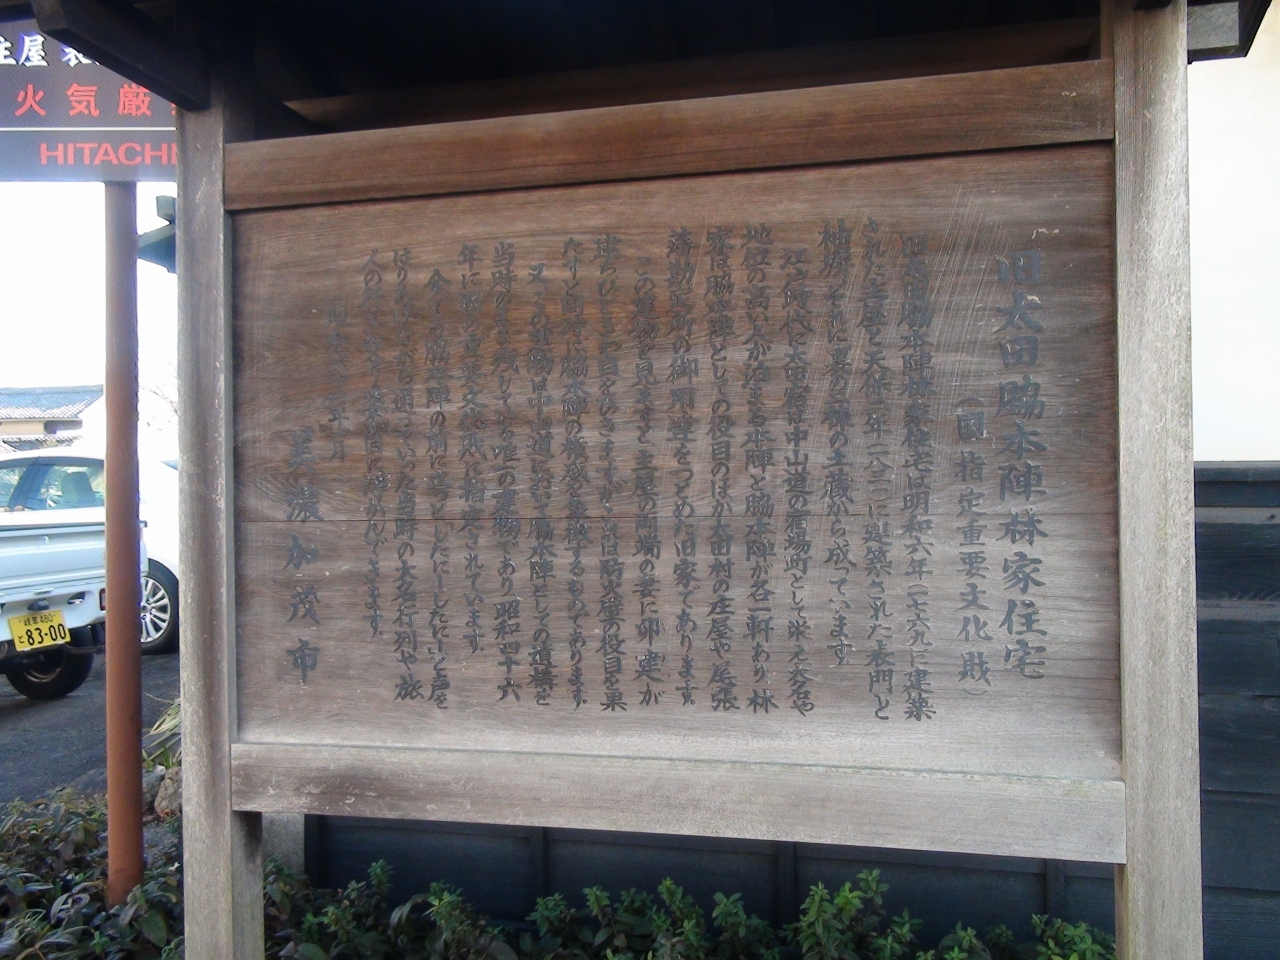 旧太田脇本陣林家住宅
(国指定重要文化財)
旧太田脇本陣林家住宅は明和六年(一七六九)に建築
された主屋と天保二年(一八三一)に建築された表門と
袖塀、それに裏の二棟の土蔵から成っています。
江戸時代に太田宿は中山道の宿場町として栄え大名や
地位の高い人が泊まる本陣と脇本陣が各一軒あり林
家は脇本陣としての役目のほか太田村の庄屋や尾張
藩勘定所の御用達をつとめた旧家であります。
この建物を見ますと主屋の両端の妻に卯建が
建ちひときわ目をひきますが、これは防火壁の役目を果
たすと同時に脇本陣の権威を象徴するものであります。
又、この建物は中山道において脇本陣としての遺構を
当時のまま残している唯一の建物であり昭和四十六
年に国の重要文化財に指定されています。
今でも脇本陣の前に立つと「したにーしたにい」と声を
はりあげながら通っていった当時の大名行列や旅
人の
目に浮かんできます。
美濃加茂市
住屋
火気厳
HITACHI
岐阜 480
83-00